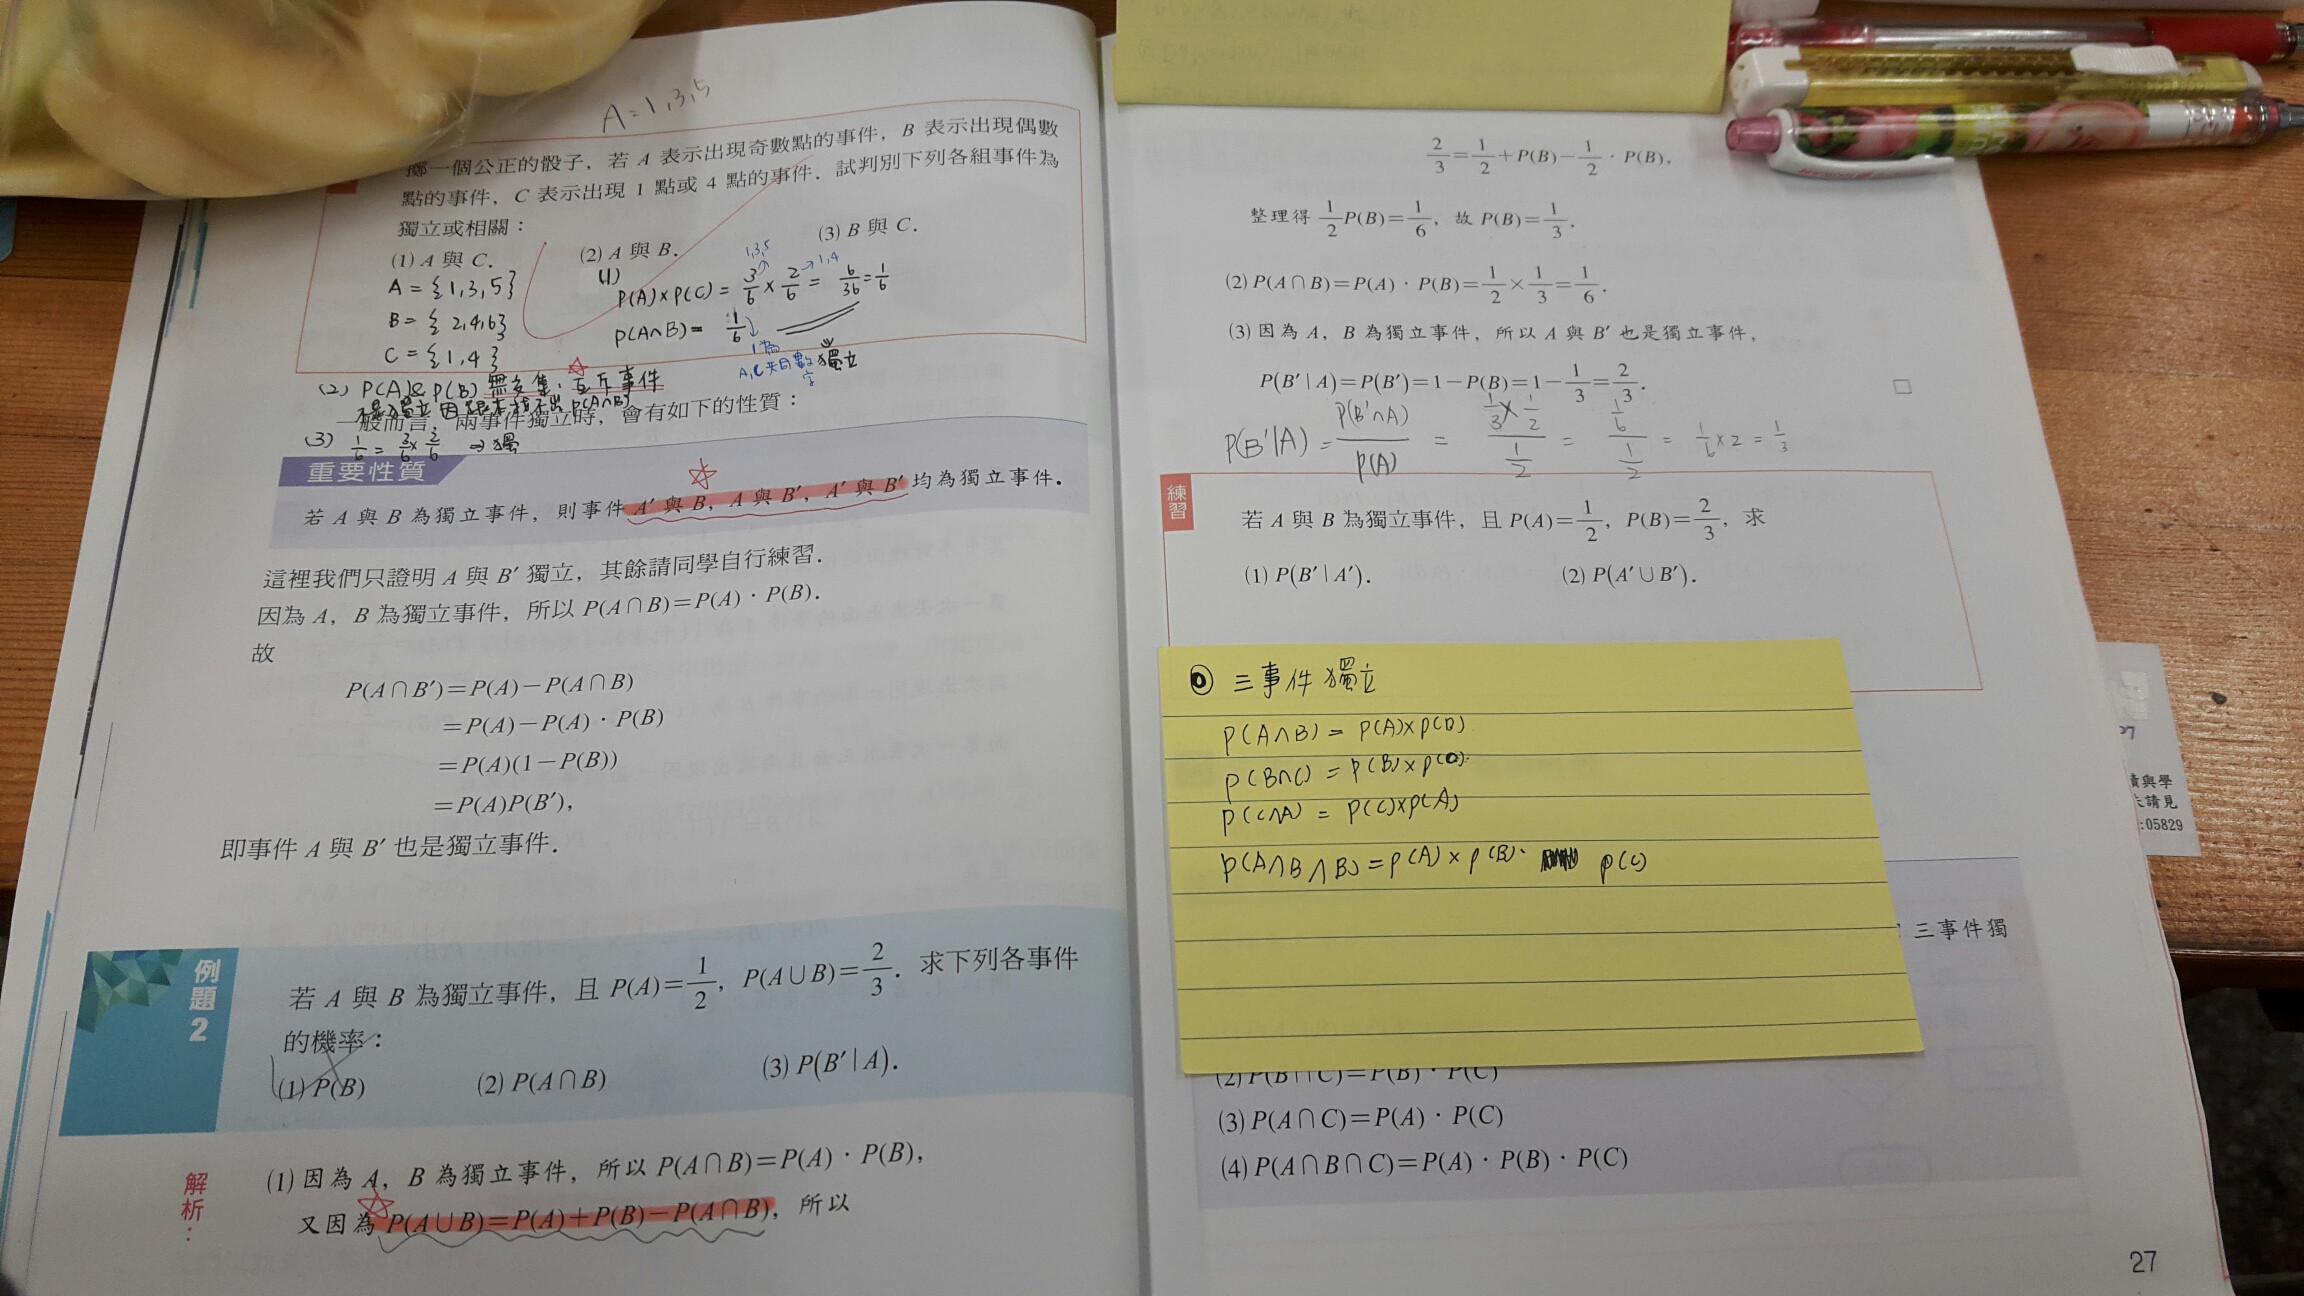 A=1,3,5
擲一個公正的骰子，若 A 表示出現奇數點的事件，B 表示出現偶數
點的事件，C 表示出現 1 點或 4 點的事件．試判別下列各組事件為
獨立或相關：
(1) A 與 C．
(2) A 與 B．
(3) B 與 C．
A = {1,3,5}
B = {2,4,6}
C = {1,4}
(1)
1,3,5
1,4
P(A)×P(C) = 3/6 × 2/6 = 6/36 = 1/6
P(A∩B) = 1/6
1為
A,C共同數字
獨立
(2) P(A)&P(B) 無交集，互斥事件
(3) 1/6 = 3/6 × 2/6 → 獨
一般而言，兩事件獨立時，會有如下的性質：
重要性質
若 A 與 B 為獨立事件，則事件 A′ 與 B，A 與 B′，A′ 與 B′ 均為獨立事件．
這裡我們只證明 A 與 B′ 獨立，其餘請同學自行練習．
因為 A，B 為獨立事件，所以 P(A∩B)=P(A)·P(B)．
故
P(A∩B′)=P(A)−P(A∩B)
=P(A)−P(A)·P(B)
=P(A)(1−P(B))
=P(A)P(B′)，
即事件 A 與 B′ 也是獨立事件．
例題2
若 A 與 B 為獨立事件，且 P(A)=1/2，P(A∪B)=2/3．求下列各事件
的機率：
(1) P(B)
(2) P(A∩B)
(3) P(B′|A)．
解析：
(1) 因為 A，B 為獨立事件，所以 P(A∩B)=P(A)·P(B)，
又因為 P(A∪B)=P(A)+P(B)−P(A∩B)，所以
2/3=1/2+P(B)−1/2·P(B)，
整理得 1/2P(B)=1/6，故 P(B)=1/3．
(2) P(A∩B)=P(A)·P(B)=1/2×1/3=1/6．
(3) 因為 A，B 為獨立事件，所以 A 與 B′ 也是獨立事件，
P(B′|A)=P(B′)=1−P(B)=1−1/3=2/3．
P(B′|A) = P(B′∩A)/P(A) = (1/3×1/2)/(1/2) = (1/6)/(1/2) = 1/6×2 = 1/3
練習
若 A 與 B 為獨立事件，且 P(A)=1/2，P(B)=2/3，求
(1) P(B′|A′)．
(2) P(A′∪B′)．
三事件獨立
P(A∩B) = P(A)×P(B)
P(B∩C) = P(B)×P(C)
P(C∩A) = P(C)×P(A)
P(A∩B∩B) = P(A)×P(B)· P(C)
三事件獨
(2) P(B∩C)=P(B)·P(C)
(3) P(A∩C)=P(A)·P(C)
(4) P(A∩B∩C)=P(A)·P(B)·P(C)
與學
請見
:05829
27